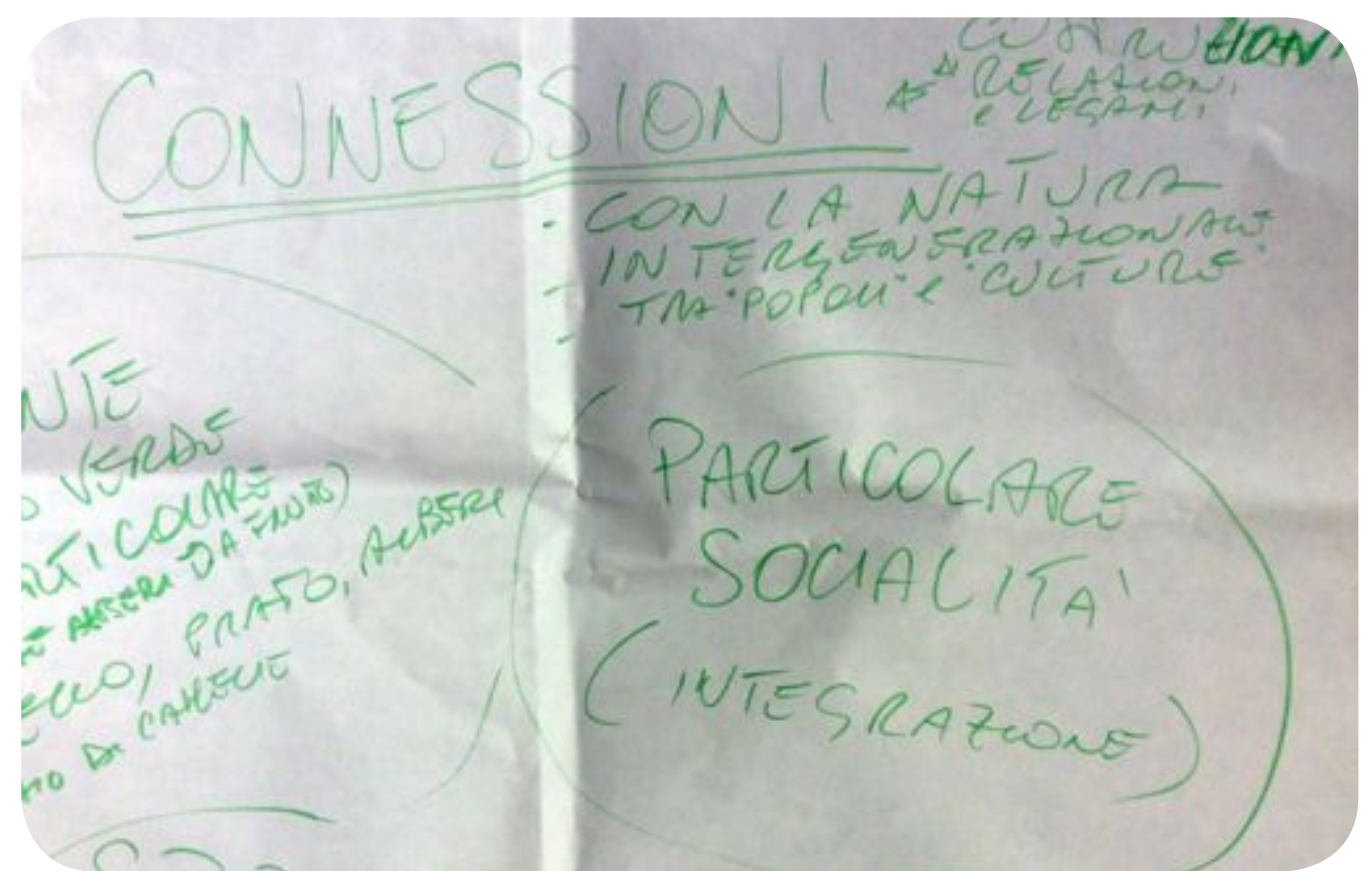 CONNESSIONI
RELAZIONI
e LEGAMI
- CON LA NATURA
- INTERGENERAZIONALE
- TRA "POPOLI" e "CULTURE"
NTE
VERDE
RTICOLARE
ALBERI DA FRUTTO)
PRATO, ALBERI
DA
PARTICOLARE
SOCIALITA'
(INTEGRAZIONE)